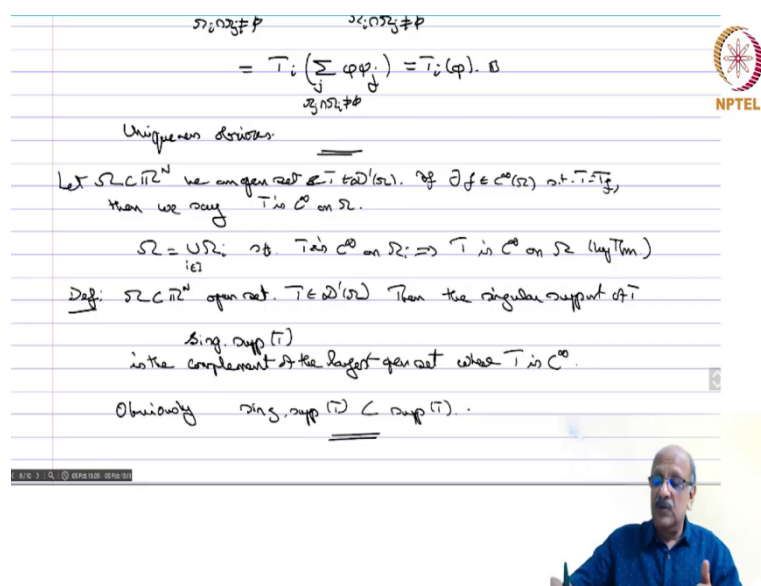 Ωi∩Ωj≠φ Ωi∩Ωj≠φ
= Ti (∑ φφj) = Ti(φ). ▯
j
Ωj∩Ωi≠φ
Uniqueness obvious.
Let Ω⊂ℝᴺ be an open set & T∈𝒟'(Ω). If ∃f∈C^∞(Ω) s.t. T=T_f,
then we say T is C^∞ on Ω.
Ω = ∪Ωi s.t. T is C^∞ on Ωi => T is C^∞ on Ω (by Thm.)
i∈I
Def: Ω⊂ℝᴺ open set. T∈𝒟'(Ω) Then the singular support of T
Sing. supp(T)
is the complement of the largest open set where T is C^∞.
Obviously sing. supp(T) ⊂ supp(T).
NPTEL